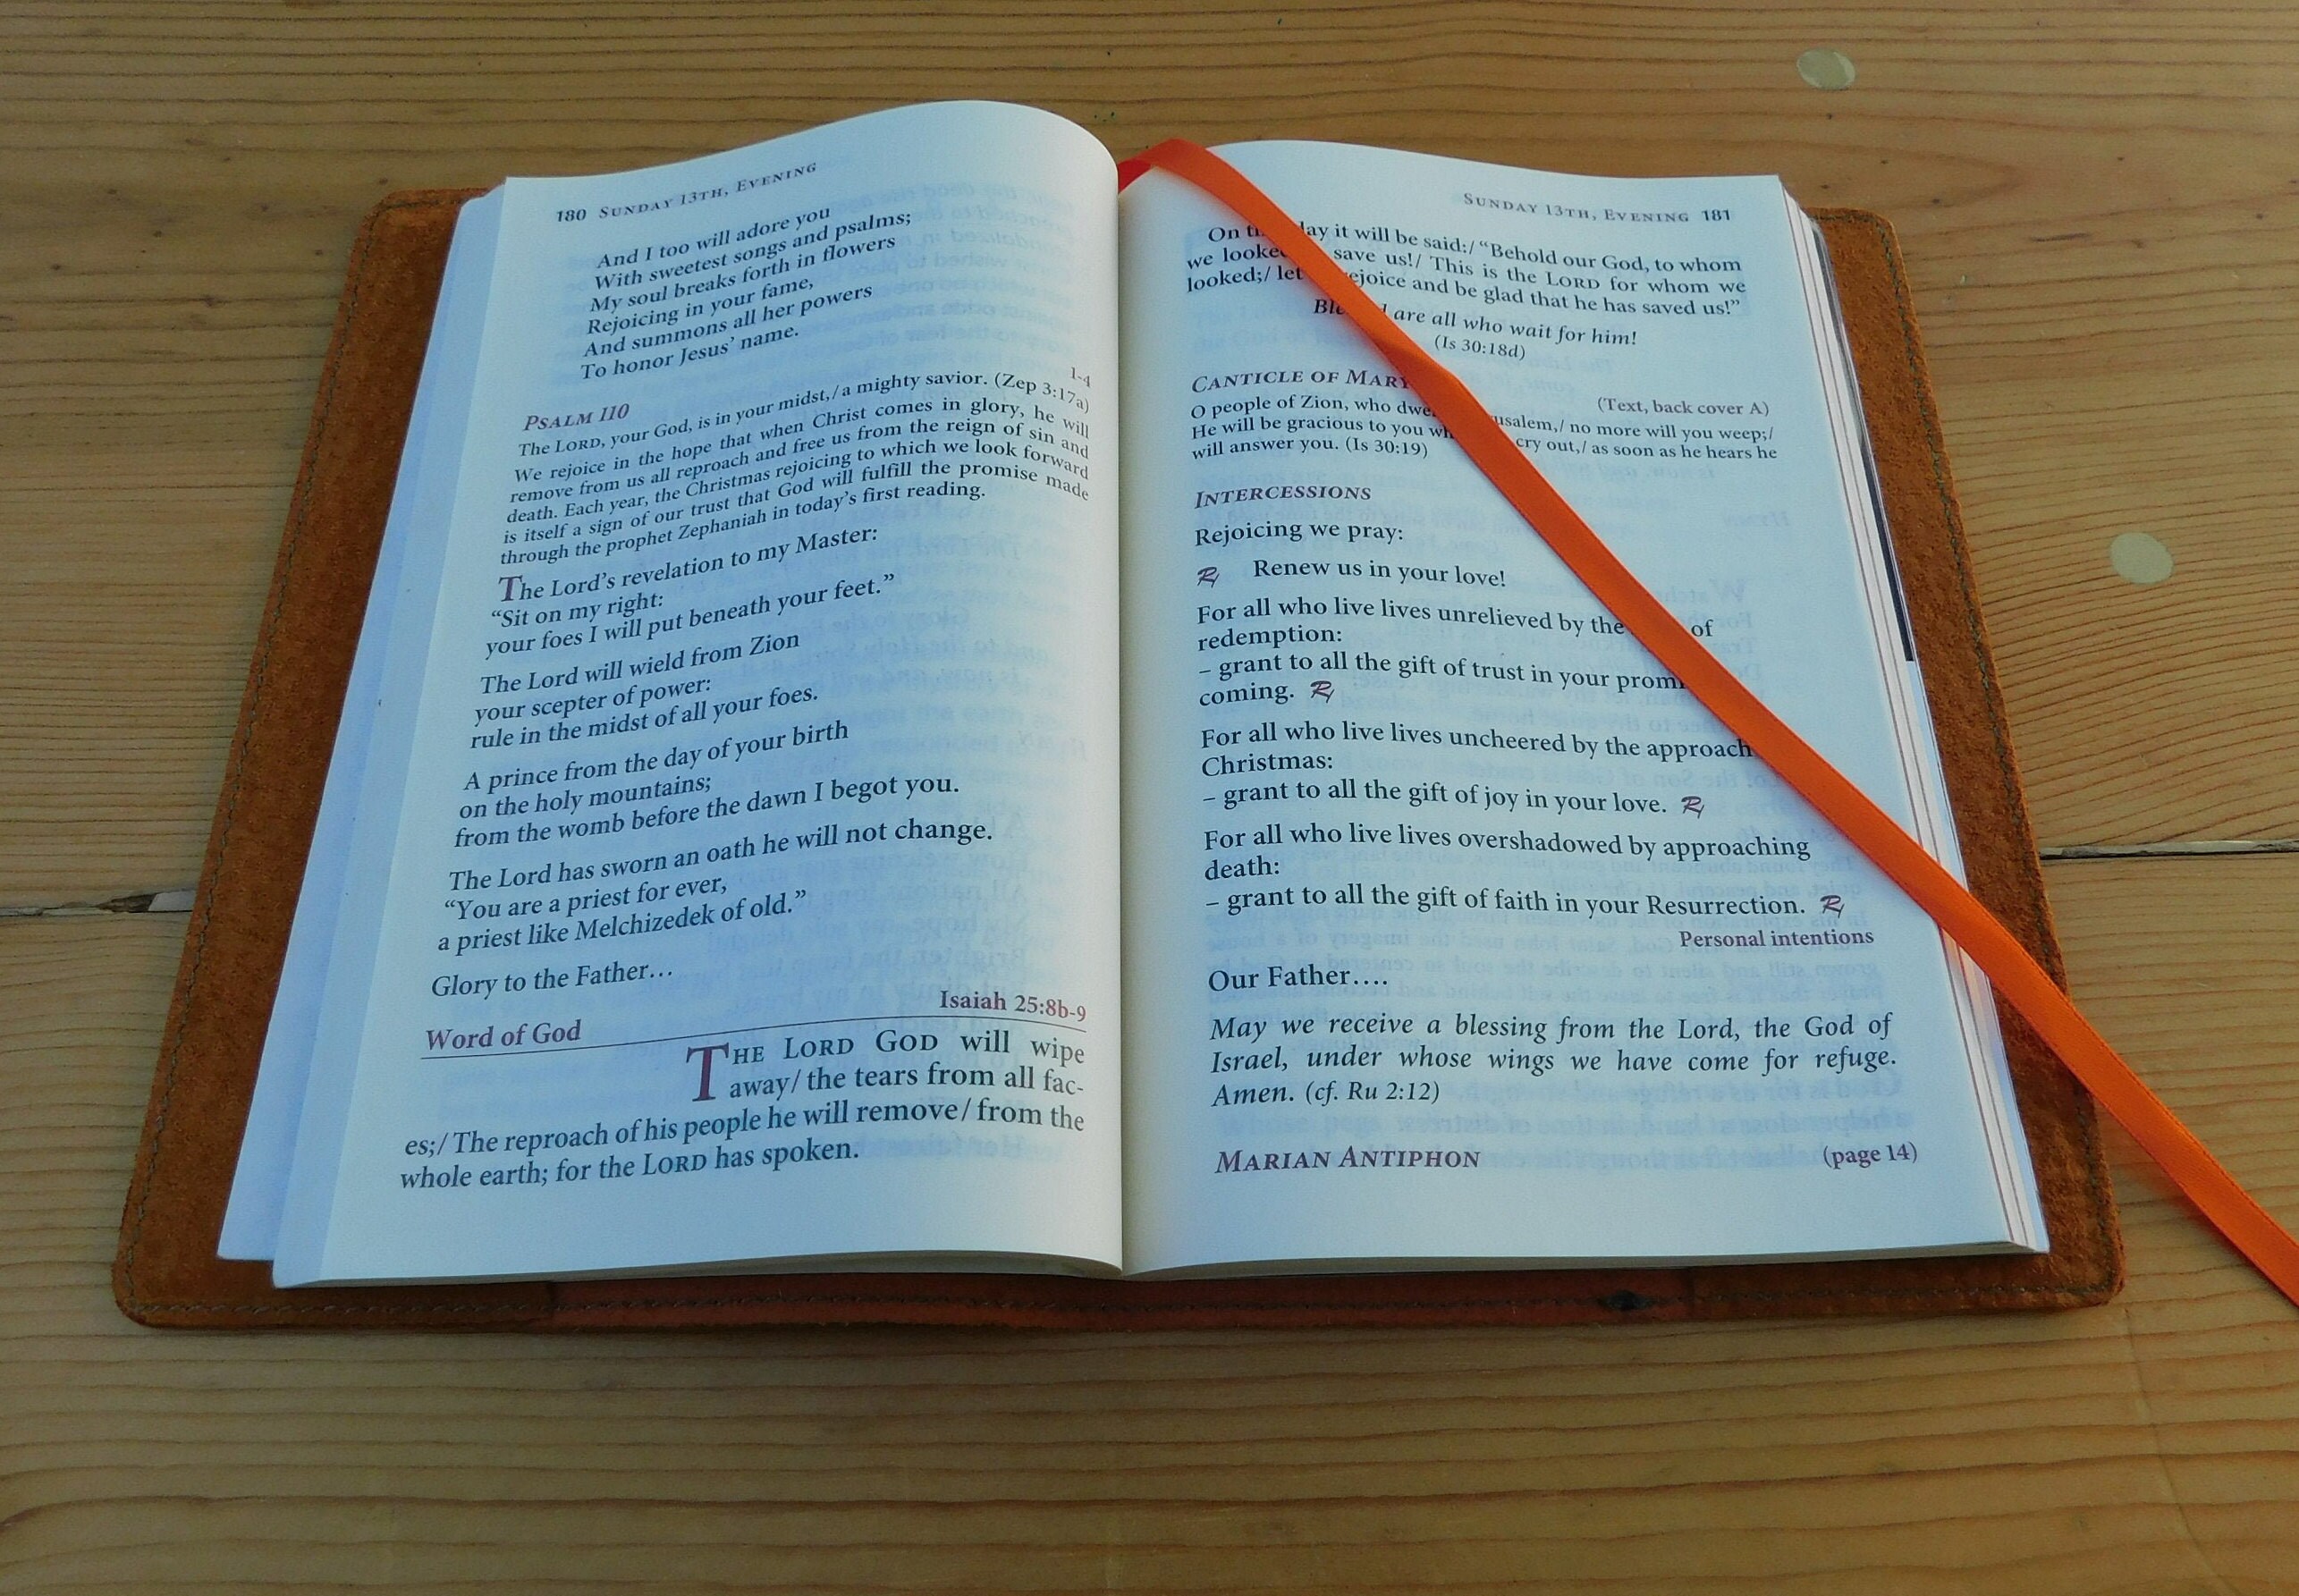 180 SUNDAY 13TH, EVENING
And I too will adore you
With sweetest songs and psalms;
My soul breaks forth in flowers
Rejoicing in your fame,
And summons all her powers
To honor Jesus' name.
PSALM 110 1-4
The LORD, your God, is in your midst,/ a mighty savior. (Zep 3:17a)
We rejoice in the hope that when Christ comes in glory, he will
remove from us all reproach and free us from the reign of sin and
death. Each year, the Christmas rejoicing to which we look forward
is itself a sign of our trust that God will fulfill the promise made
through the prophet Zephaniah in today's first reading.
The Lord's revelation to my Master:
“Sit on my right:
your foes I will put beneath your feet.”
The Lord will wield from Zion
your scepter of power:
rule in the midst of all your foes.
A prince from the day of your birth
on the holy mountains;
from the womb before the dawn I begot you.
The Lord has sworn an oath he will not change.
“You are a priest for ever,
a priest like Melchizedek of old.”
Glory to the Father…
Word of God Isaiah 25:8b-9
THE LORD GOD will wipe
away/ the tears from all fac-
es;/ The reproach of his people he will remove/ from the
whole earth; for the LORD has spoken.
SUNDAY 13TH, EVENING 181
On it will be said:/ “Behold our God, to whom
we save us!/ This is the LORD for whom we
looked;/ let rejoice and be glad that he has saved us!”
are all who wait for him!
(Is 30:18d)
CANTICLE OF MARY (Text, back cover A)
O people of Zion, who no more will you weep;/
He will be gracious to you cry out,/ as soon as he hears he
will answer you. (Is 30:19)
INTERCESSIONS
Rejoicing we pray:
℟ Renew us in your love!
For all who live lives unrelieved by the of
redemption:
– grant to all the gift of trust in your
coming. ℟
For all who live lives uncheered by the approach
Christmas:
– grant to all the gift of joy in your love. ℟
For all who live lives overshadowed by approaching
death:
– grant to all the gift of faith in your Resurrection. ℟
Personal intentions
Our Father….
May we receive a blessing from the Lord, the God of
Israel, under whose wings we have come for refuge.
Amen. (cf. Ru 2:12)
MARIAN ANTIPHON (page 14)